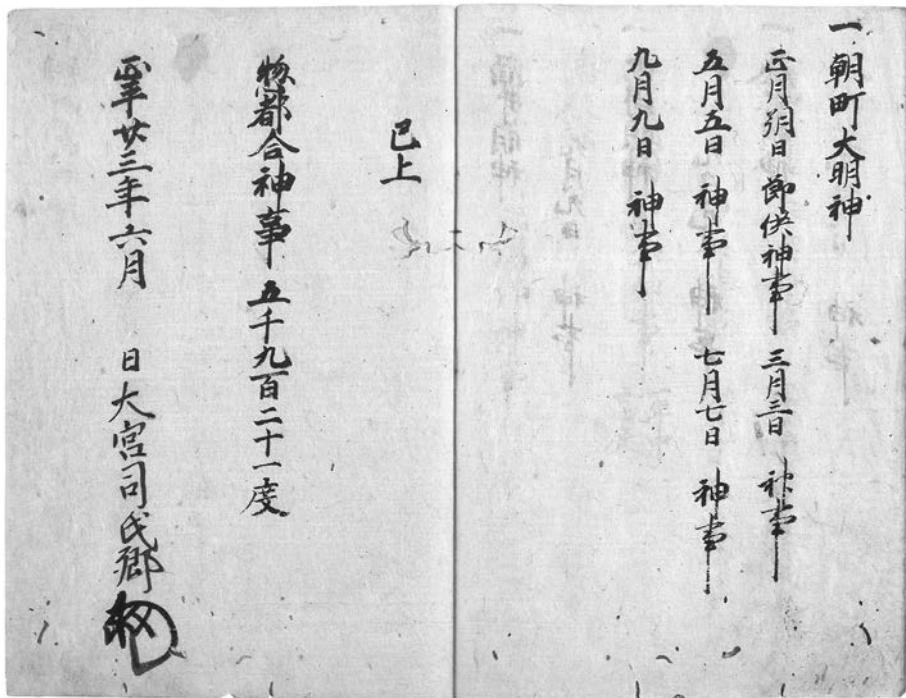 一朝町大明神
正月朔日節供神事 三月三日 神事
五月五日 神事 七月七日 神事
九月九日 神事
已上
惣都合神事 五千九百二十一度
正平廿三年六月 日大宮司氏郷